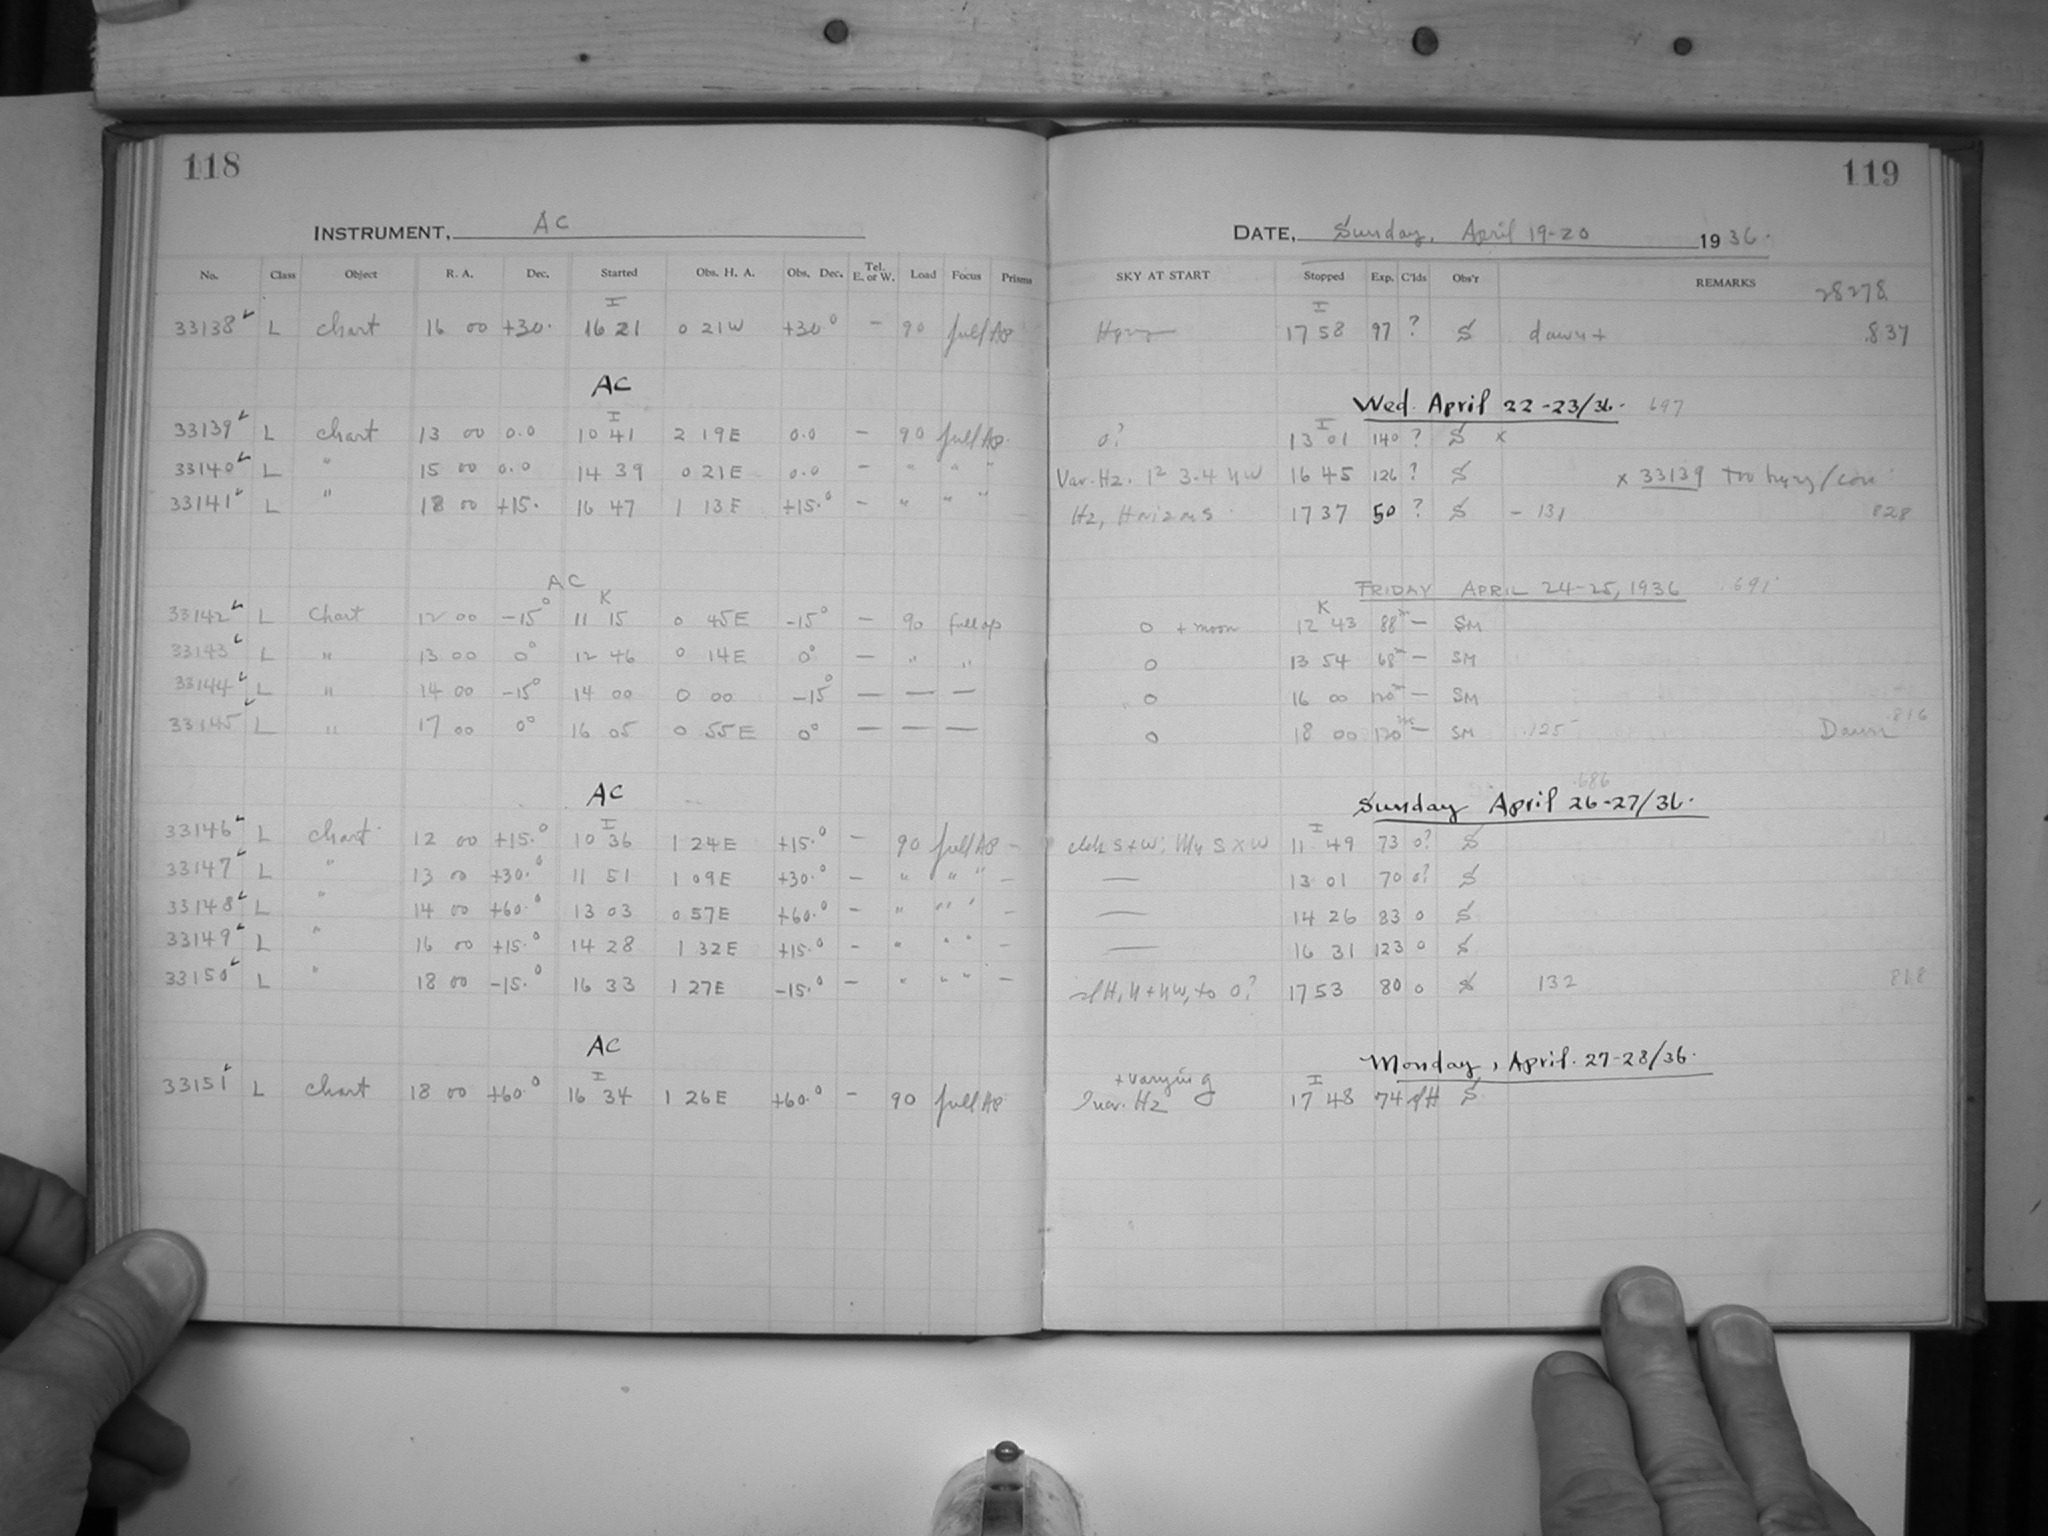 118
INSTRUMENT, AC
No. Class Object R. A. Dec. Started Obs. H. A. Obs. Dec. Tel. E. or W. Load Focus Prisms
I
33138 L chart 16 00 +30. 16 21 0 21W +30° — 90 full Ap
AC
I
33139 L chart 13 00 0.0 10 41 2 19E 0.0 — 90 full Ap.
33140 L " 15 00 0.0 14 39 0 21E 0.0 — " " "
33141 L " 18 00 +15. 16 47 1 13E +15.° — " " "
AC
K
33142 L Chart 12 00 -15° 11 15 0 45E -15° — 90 full ap
33143 L " 13 00 0° 12 46 0 14E 0° — " "
33144 L " 14 00 -15° 14 00 0 00 -15° — — —
33145 L " 17 00 0° 16 05 0 55E 0° — — —
AC
I
33146 L chart 12 00 +15.° 10 36 1 24E +15.° — 90 full Ap —
33147 L " 13 00 +30.° 11 51 1 09E +30.° — " " " —
33148 L " 14 00 +60.° 13 03 0 57E +60.° — " " " —
33149 L " 16 00 +15.° 14 28 1 32E +15.° — " " " —
33150 L " 18 00 -15.° 16 33 1 27E -15.° — " " " —
AC
I
33151 L chart 18 00 +60.° 16 34 1 26E +60.° — 90 full Ap
119
DATE, Sunday, April 19-20 1936.
SKY AT START Stopped Exp. C'lds Obs'r REMARKS
28278
I
Hazy 17 58 97 ? S dawn + .837
Wed. April 22-23/36. 697
I
0? 13 01 140 ? S x
Var. Hz. 1² 3-4 NW 16 45 126 ? S x 33139 too hazy/
Hz, Horizons 17 37 50 ? S - 131 828
FRIDAY APRIL 24-25, 1936 .691
K
0 + moon 12 43 88m — SM
0 13 54 68m — SM
0 16 00 120m — SM
0 18 00 120m — SM .125 Dawn .816
.686
Sunday April 26-27/36.
I
S+W: S x W 11 49 73 0? S
— 13 01 70 0? S
— 14 26 83 0 S
— 16 31 123 0 S
slH, N+NW, to 0? 17 53 80 0 S 132 818
Monday, April. 27-28/36.
+ varying
I
Hz 17 48 74 slH S